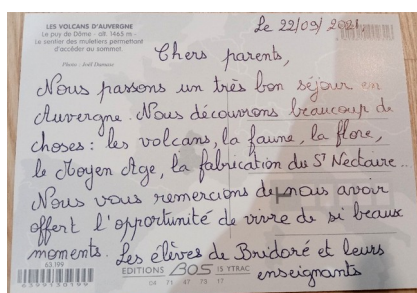 LES VOLCANS D'AUVERGNE
Le puy de Dôme - alt. 1465 m -
Le sentier des muletiers permettant
d'accéder au sommet.
Photo : Joël Damase
Le 22/09/2021
Chers parents,
Nous passons un très bon séjour en
Auvergne. Nous découvrons beaucoup de
choses : les volcans, la faune, la flore,
le Moyen Age, la fabrication du St Nectaire...
Nous vous remercions de nous avoir
offert l'opportunité de vivre de si beaux
moments. Les élèves de Bridoré et leurs
enseignants
63.199
EDITIONS BOS 15 YTRAC
04 71 47 73 17